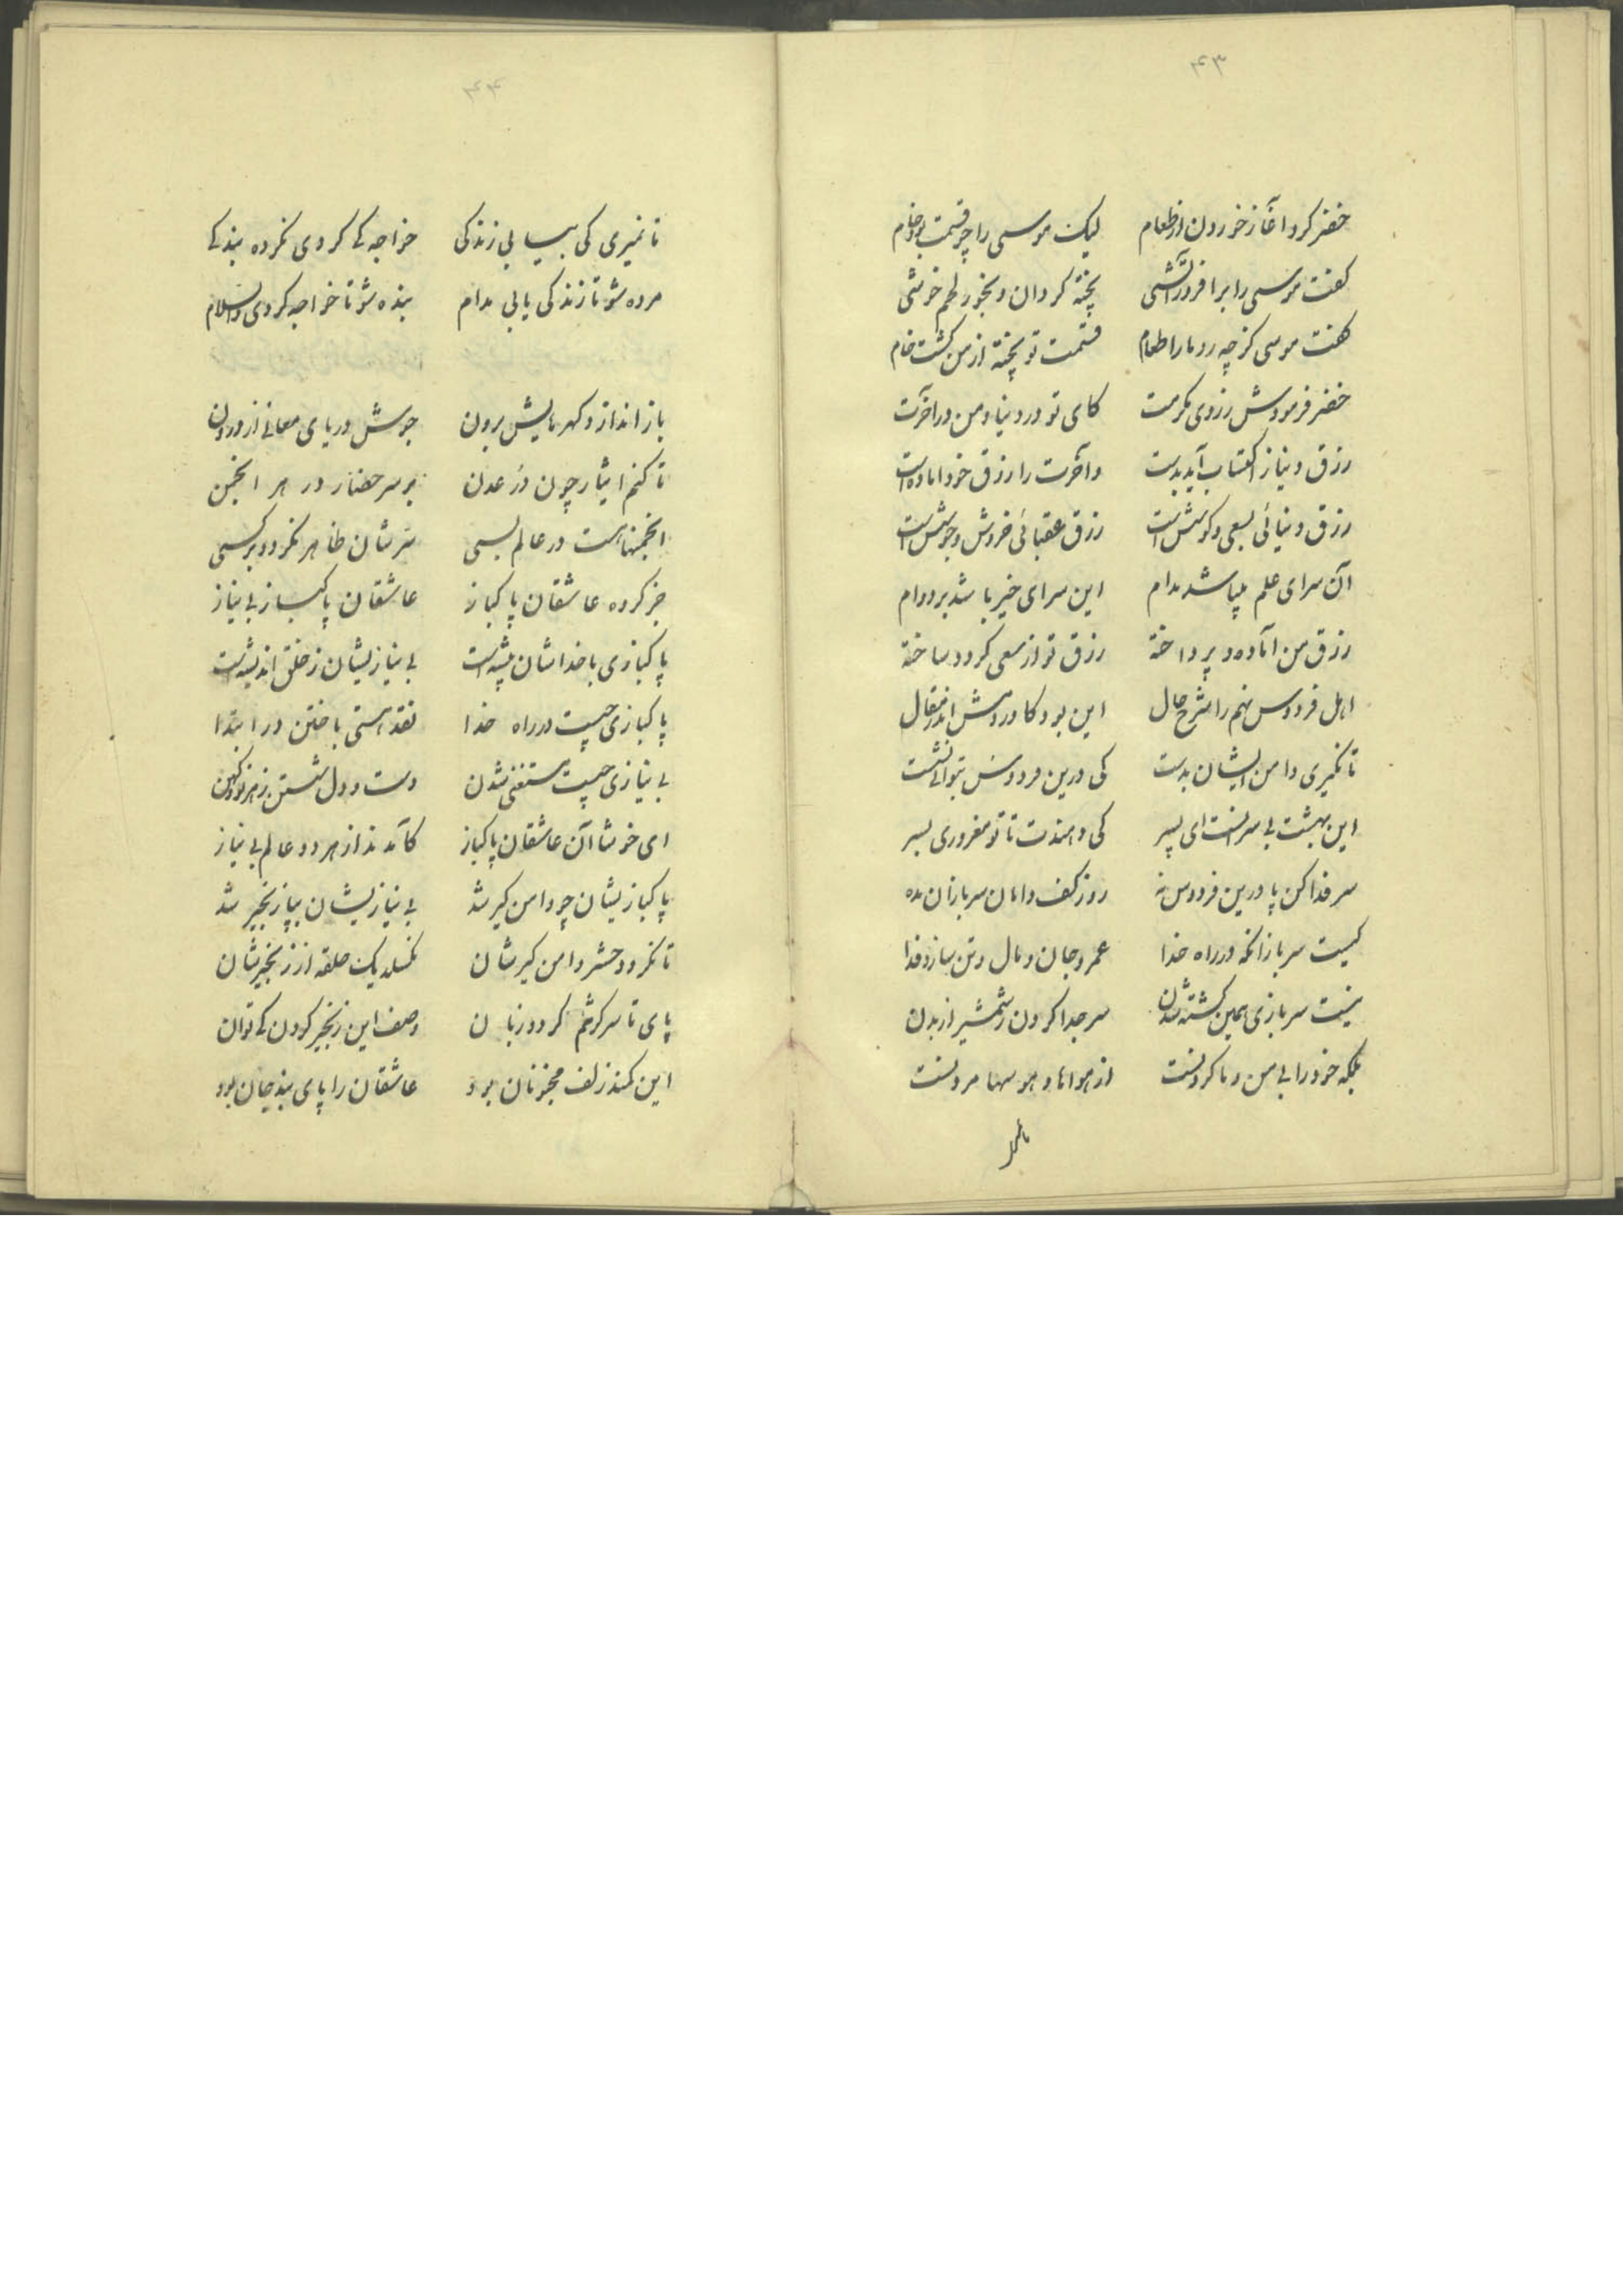 ۴۳
خضر کرد آغاز خوردن از طعام لیک موسی را چو قسمت بود خام
گفت موسی را برافروز آتشی پخته گردان و بخور لحم خوشی
گفت موسی کز چه رو ما را طعام قسمت تو پخته از من گشت خام
خضر فرمودش ز روی مکرمت کای تو در دنیا و من در آخرت
رزق دنیا ز اکتساب آید بدست و آخرت را رزق خود آماده است
رزق دنیائی بسعی و کوشش است رزق عقبائی خروش و جوشش است
آن سرای علم میباشد مدام این سرای خیر باشد بر دوام
رزق من آماده و پرداخته رزق تو از سعی گردد ساخته
اهل فردوس نهم را شرح حال این بود کاوردمش اندر مقال
تا نگیری دامن ایشان بدست کی درین فردوس بتوانی نشست
این بهشت بی سرانست ای پسر کی دهندت تا تو مغروری بسر
سر فدا کن پا درین فردوس نه رو ز کف دامان سربازان مده
کیست سرباز آنکه در راه خدا عمر و جان و مال و تن سازد فدا
نیست سربازی همین کشته شدن سر جدا کردن ز شمشیر از بدن
بلکه خود را بی من و ما کردنست از هواها و هوسها مردنست
۴۴
تا نمیری کی بیابی زندگی خواجه کی گردی نکرده بندگی
مرده شو تا زندگی یابی مدام بنده شو تا خواجه گردی والسلام
باز اندازد گهرهایش برون جوشش دریای معانی از درون
تا کنم ایثار چون در عدن بر سر حضار در هر انجمن
انجمنها هست در عالم بسی سرشان ظاهر نگردد بر کسی
جز گروه عاشقان پاکباز عاشقان پاکباز بی نیاز
پاکبازی با خداشان پیشه است بی نیازیشان ز خلق اندیشه است
پاکبازی چیست در راه خدا نقد هستی باختن در ابتدا
بی نیازی چیست مستغنی شدن دست و دل شستن ز هر نو و کهن
ای خوشا آن عاشقان پاکباز کآمدند از هر دو عالم بی نیاز
پاکبازیشان چو دامن گیر شد بی نیازیشان بپا زنجیر شد
تا نگردد حشر دامن گیرشان نگسلد یک حلقه از زنجیرشان
پای تا سر گر شمم گردد زبان وصف این زنجیر کردن کی توان
این کمند زلف مجنونان بود عاشقان را پای بند جان بود